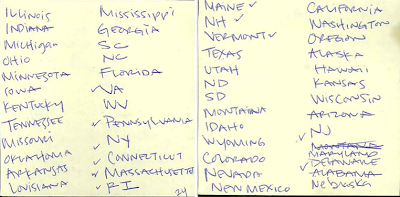 Illinois
Indiana
Michigan
Ohio
Minnesota
Iowa
Kentucky
Tennessee
Missouri
Oklahoma
Arkansas
Louisiana
Mississippi
Georgia
SC
NC
Florida
VA
WV
✓ Pennsylvania
✓ NY
✓ Connecticut
✓ Massachusetts
✓ RI
24
Maine ✓
NH ✓
Vermont ✓
Texas
Utah
ND
SD
Montana
Idaho
Wyoming
Colorado
Nevada
New Mexico
California
Washington
Oregon
Alaska
Hawaii
Kansas
Wisconsin
Arizona
✓ NJ
Montana
Maryland
✓ Delaware
Alabama
Nebraska